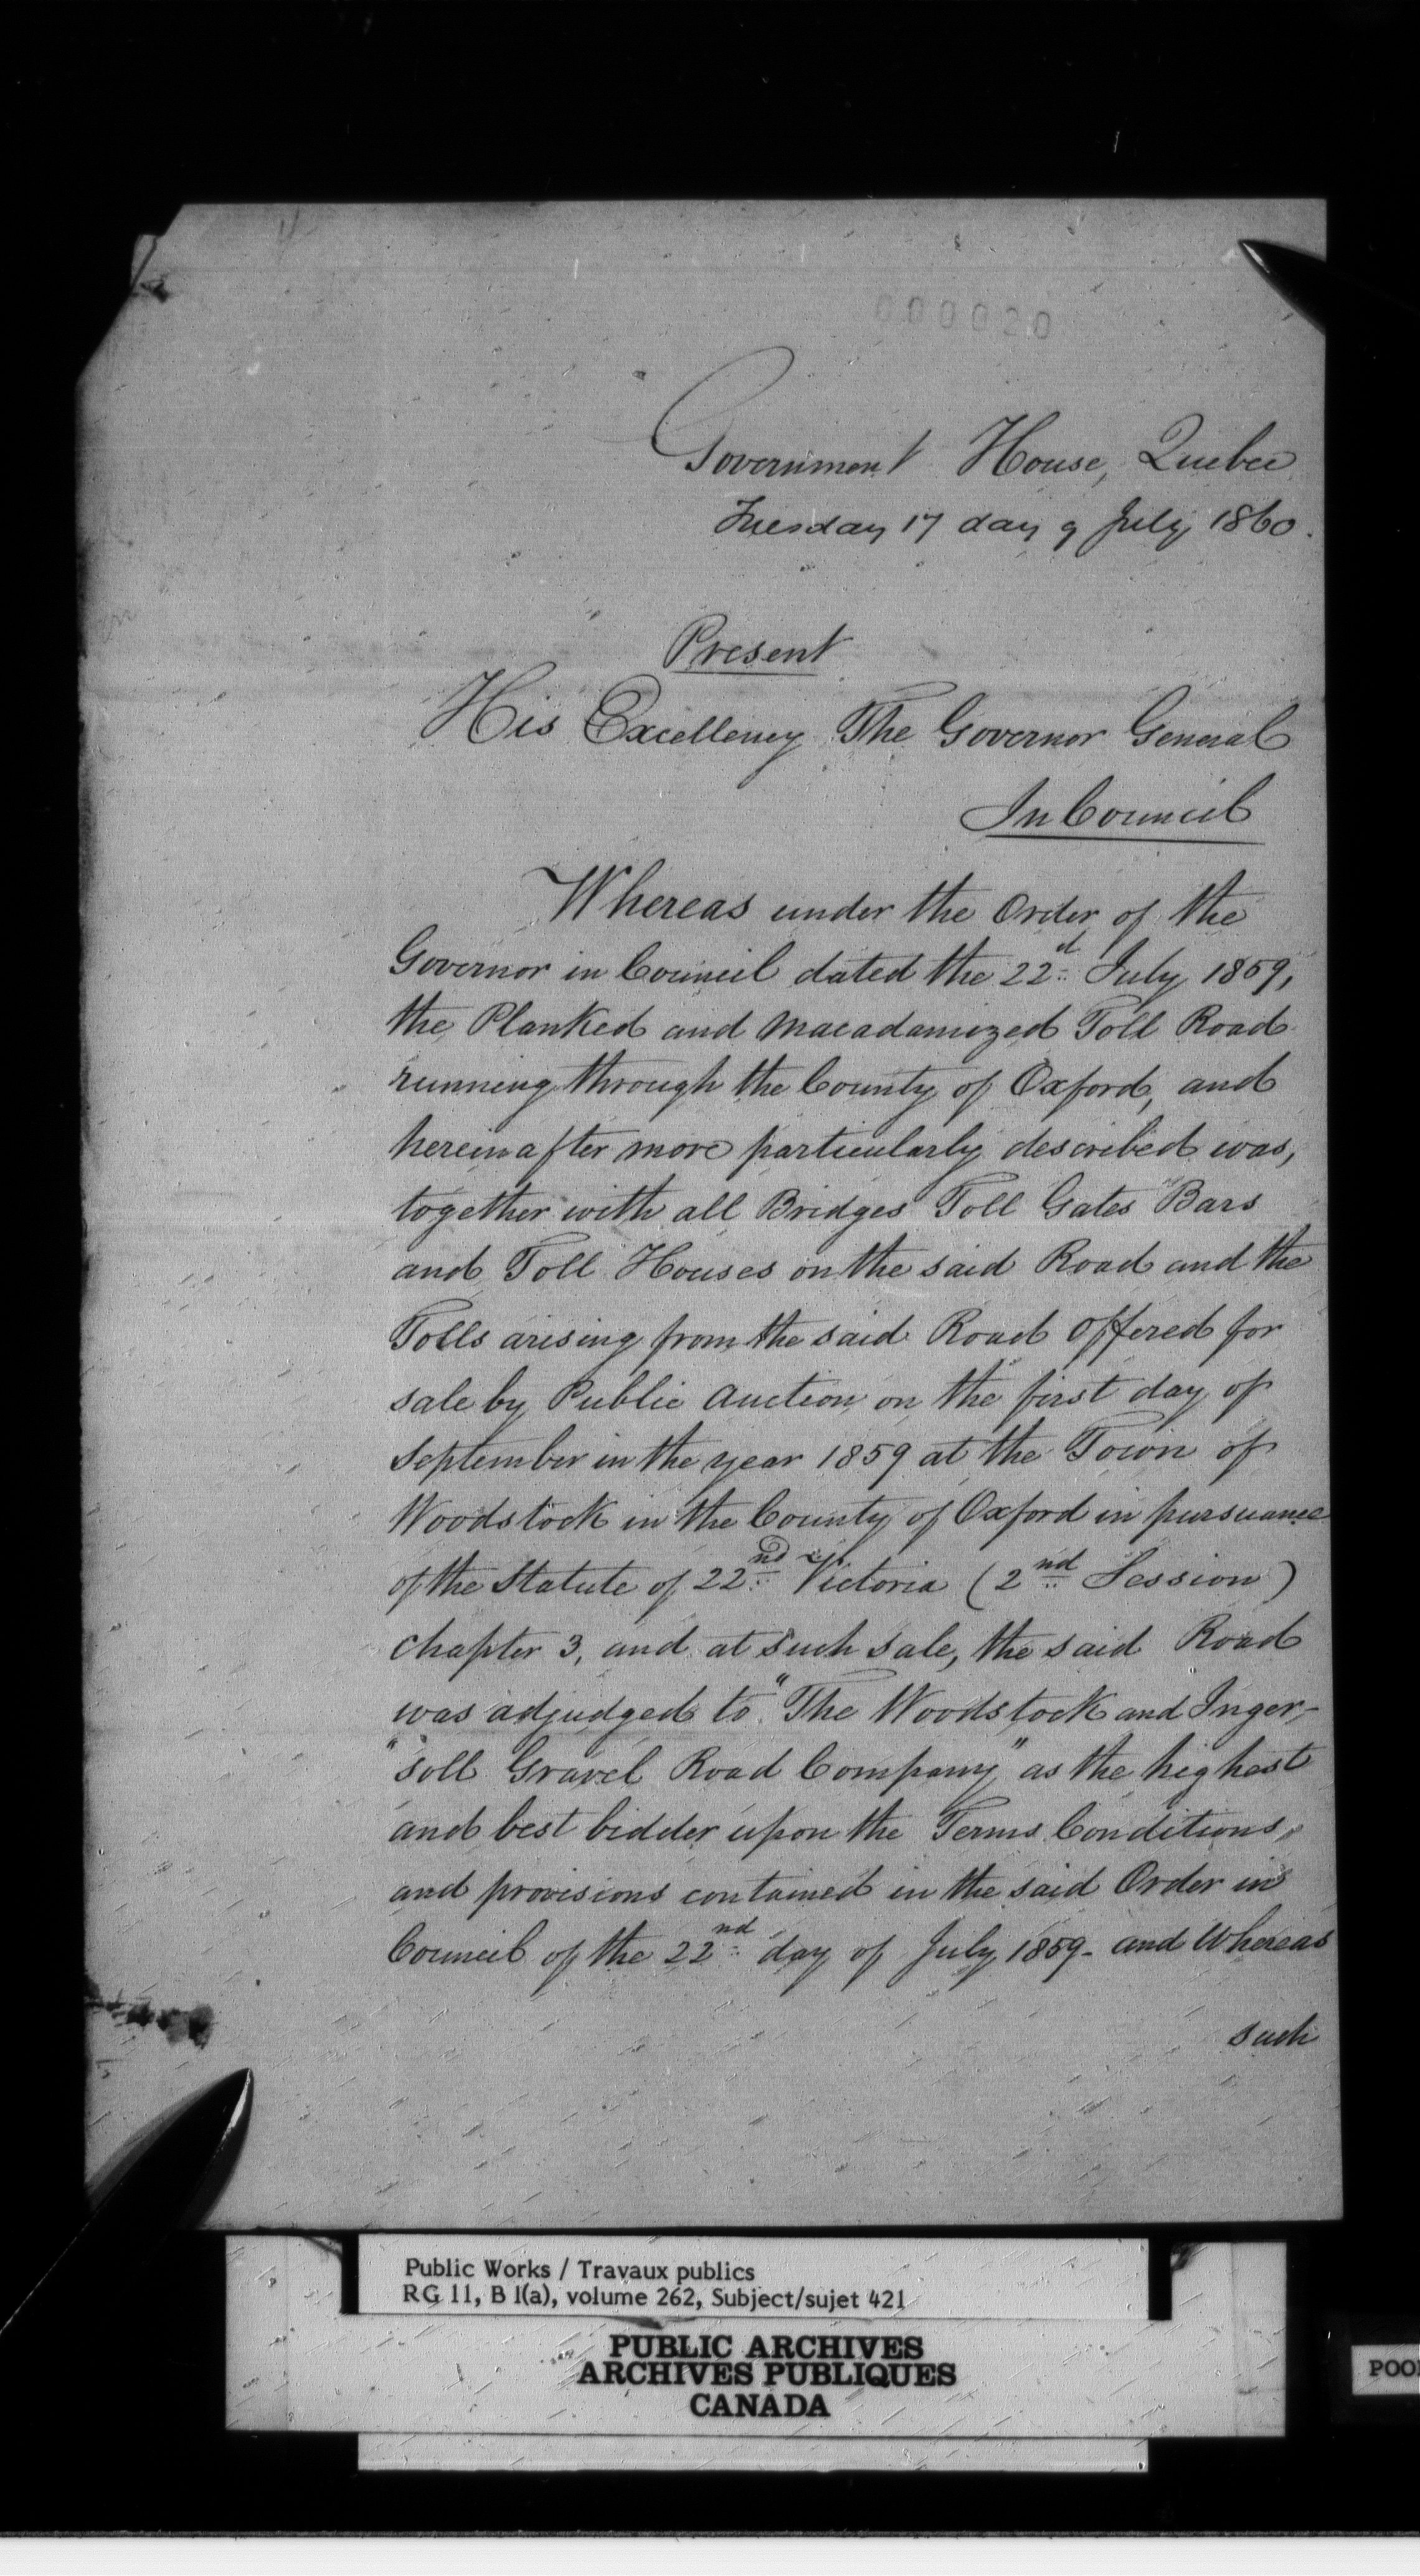 000020
Government House, Quebec
Tuesday 17 day of July 1860.
Present
His Excellency The Governor General
In Council
Whereas under the Order of the
Governor in Council dated the 22d July 1859,
the Planked and Macadamized Toll Road
running through the County of Oxford, and
hereinafter more particularly described was,
together with all Bridges Toll Gates Bars
and Toll Houses on the said Road and the
Tolls arising from the said Road offered for
sale by Public Auction on the first day of
September in the year 1859 at the Town of
Woodstock in the County of Oxford in pursuance
of the Statute of 22nd Victoria (2nd Session)
chapter 3, and at such sale, the said Road
was adjudged to "The Woodstock and Inger-
"soll Gravel Road Company" as the highest
and best bidder upon the Terms Conditions,
and provisions contained in the said Order in
Council of the 22nd day of July 1859- and Whereas
such
Public Works / Travaux publics
RG 11, B 1(a), volume 262, Subject/sujet 421
PUBLIC ARCHIVES
ARCHIVES PUBLIQUES
CANADA